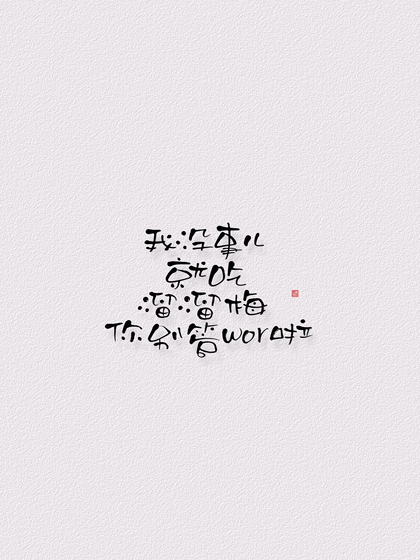 我没事儿
就吃
溜溜梅
你别管wor啦